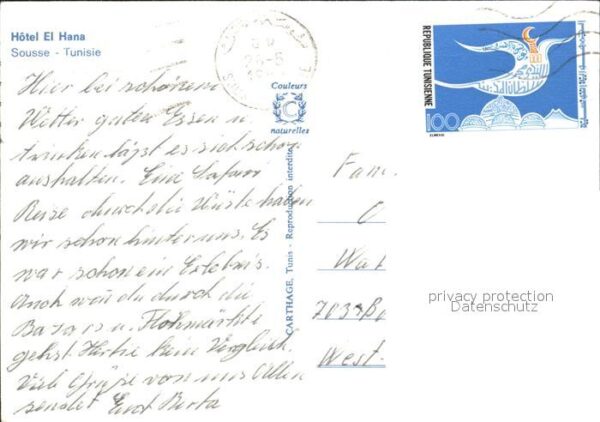 Hôtel El Hana
Sousse - Tunisie
Hier bei schönem
Wetter guten Essen u.
trinken läßt es sich schon
aushalten. Eine Safari
Reise durch die Wüste haben
wir schon hinter uns. Es
war schon ein Erlebnis.
Auch wen du durch die
Bazars u. Flohmärkte
gehst Hertie kein Vergleich.
Viele Grüße von uns Allen
sendet
Couleurs
C
naturelles
CARTHAGE, Tunis - Reproduction interdite
REPUBLIQUE TUNISIENNE
100
Fam.
West-
privacy protection
Datenschutz